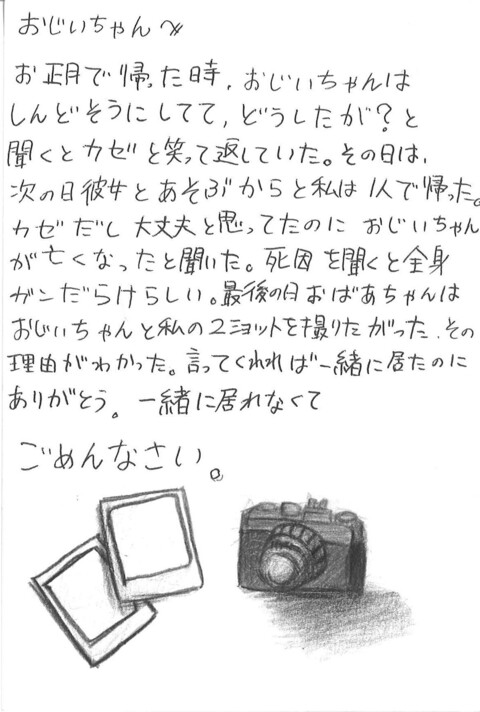 おじいちゃんへ
お正月で帰った時、おじいちゃんは
しんどそうにしてて、どうしたが?と
聞くとカゼと笑って返していた。その日は、
次の日彼女とあそぶからと私は1人で帰った。
カゼだし大丈夫と思ってたのに おじいちゃん
が亡くなったと聞いた。死因を聞くと全身
ガンだらけらしい。最後の日おばあちゃんは
おじいちゃんと私の2ショットを撮りたがった、その
理由がわかった。言ってくれれば一緒に居たのに
ありがとう。一緒に居れなくて
ごめんなさい。